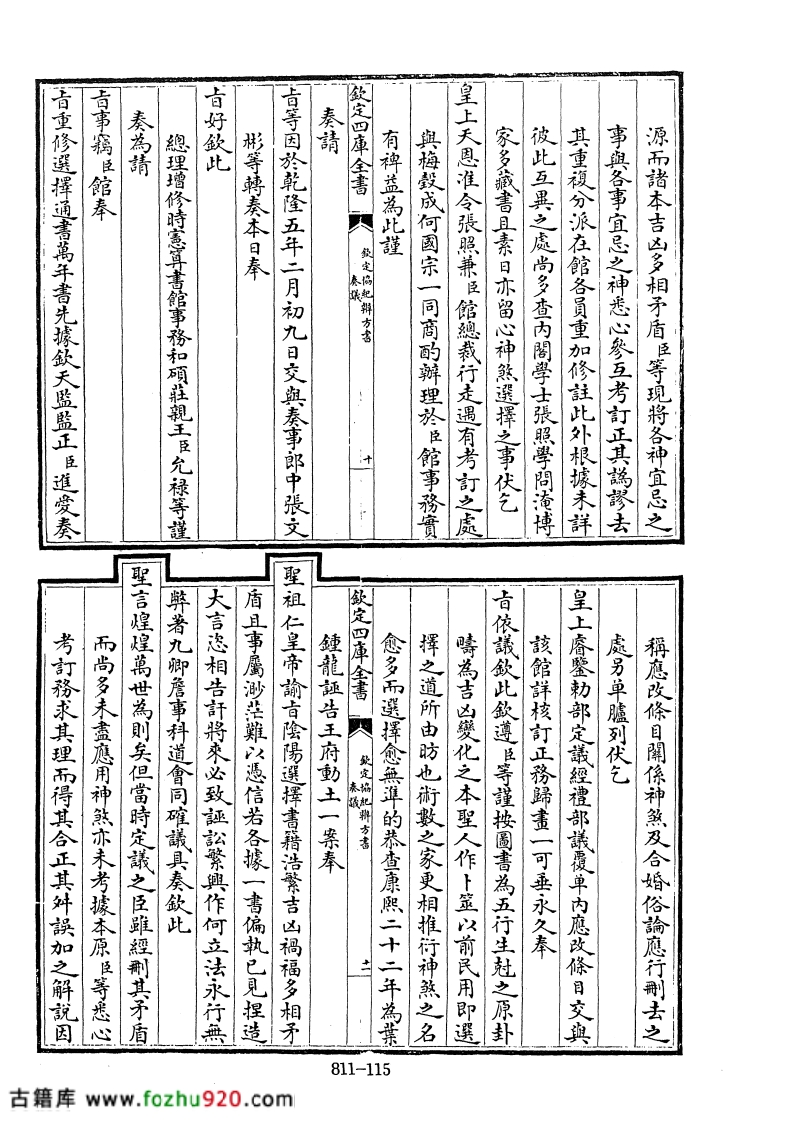 源而諸本吉凶多相矛盾臣等現將各神宜忌之
事與各事宜忌之神悉心參互考訂正其譌謬去
其重複分派在館各員重加修註此外根據未詳
彼此互異之處尚多查內閣學士張照學問淹博
家多藏書且素日亦留心神煞選擇之事伏乞
皇上天恩准令張照兼臣館總裁行走遇有考訂之處
與梅瑴成何國宗一同商酌辦理於臣館事務實
有裨益為此謹
欽定四庫全書
欽定協紀辨方書
奏議
十
奏請
旨等因於乾隆五年二月初九日交與奏事郎中張文
彬等轉奏本日奉
旨好欽此
總理增修時憲算書館事務和碩莊親王臣允祿等謹
奏為請
旨事竊臣館奉
旨重修選擇通書萬年書先據欽天監監正臣進愛奏
稱應改條目關係神煞及合婚俗論應行刪去之
處另單臚列伏乞
皇上睿鑒勅部定議經禮部議覆單內應改條目交與
該館詳核訂正務歸畫一可垂永久奉
旨依議欽此欽遵臣等謹按圖書為五行生尅之原卦
疇為吉凶變化之本聖人作卜筮以前民用即選
擇之道所由昉也術數之家更相推衍神煞之名
愈多而選擇愈無準的恭查康熙二十二年為葉
欽定四庫全書
欽定協紀辨方書
奏議
十一
鍾龍誣告王府動土一案奉
聖祖仁皇帝諭旨陰陽選擇書籍浩繁吉凶禍福多相矛
盾且事屬渺茫難以憑信若各據一書偏執已見捏造
大言恣相告訐將來必致誣訟繁興作何立法永行無
弊著九卿詹事科道會同確議具奏欽此
聖言煌煌萬世為則矣但當時定議之臣雖經刪其矛盾
而尚多未盡應用神煞亦未考據本原臣等悉心
考訂務求其理而得其合正其舛誤加之解說因
811-115
古籍库 www.fozhu920.com